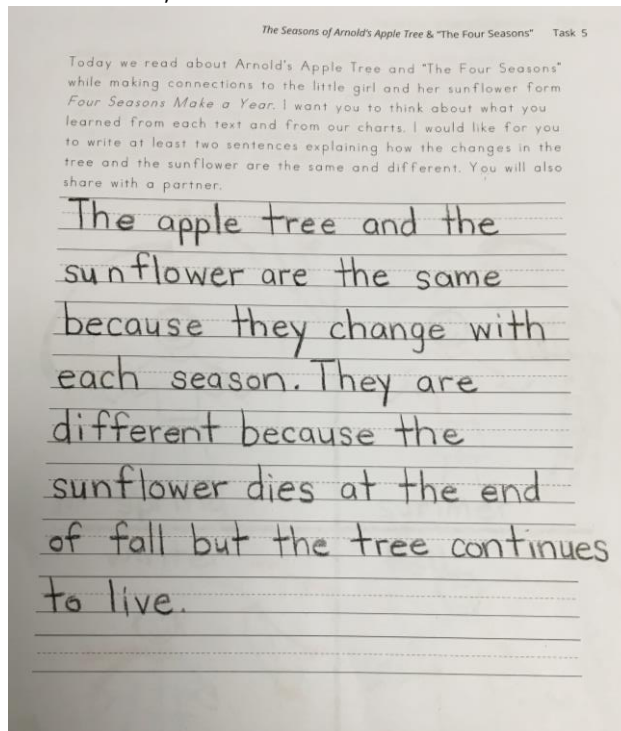 The Seasons of Arnold's Apple Tree & "The Four Seasons" Task 5
Today we read about Arnold's Apple Tree and "The Four Seasons"
while making connections to the little girl and her sunflower form
Four Seasons Make a Year. I want you to think about what you
learned from each text and from our charts. I would like for you
to write at least two sentences explaining how the changes in the
tree and the sunflower are the same and different. You will also
share with a partner.
The apple tree and the
sunflower are the same
because they change with
each season. They are
different because the
sunflower dies at the end
of fall but the tree continues
to live.